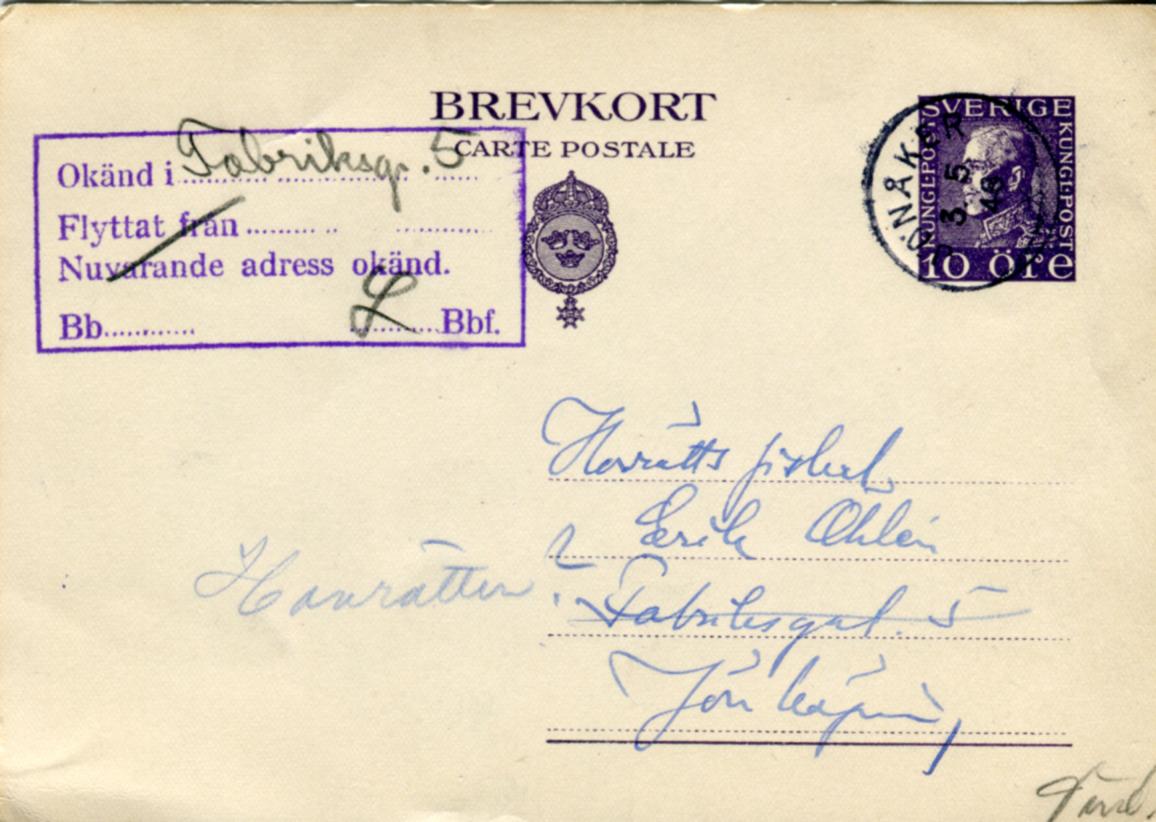 BREVKORT
CARTE POSTALE
Okänd i Fabriksg. 5
Flyttat från
Nuvarande adress okänd.
Bb............ Bbf.
SVERIGE
KUNGL·POST
KUNGL·POST
10 öre
ÖNÅKER
3 5
48
Hovrätts fiskal
Erik Ohlén
Hovrätten ?
Fabriksgat. 5
Jönköping